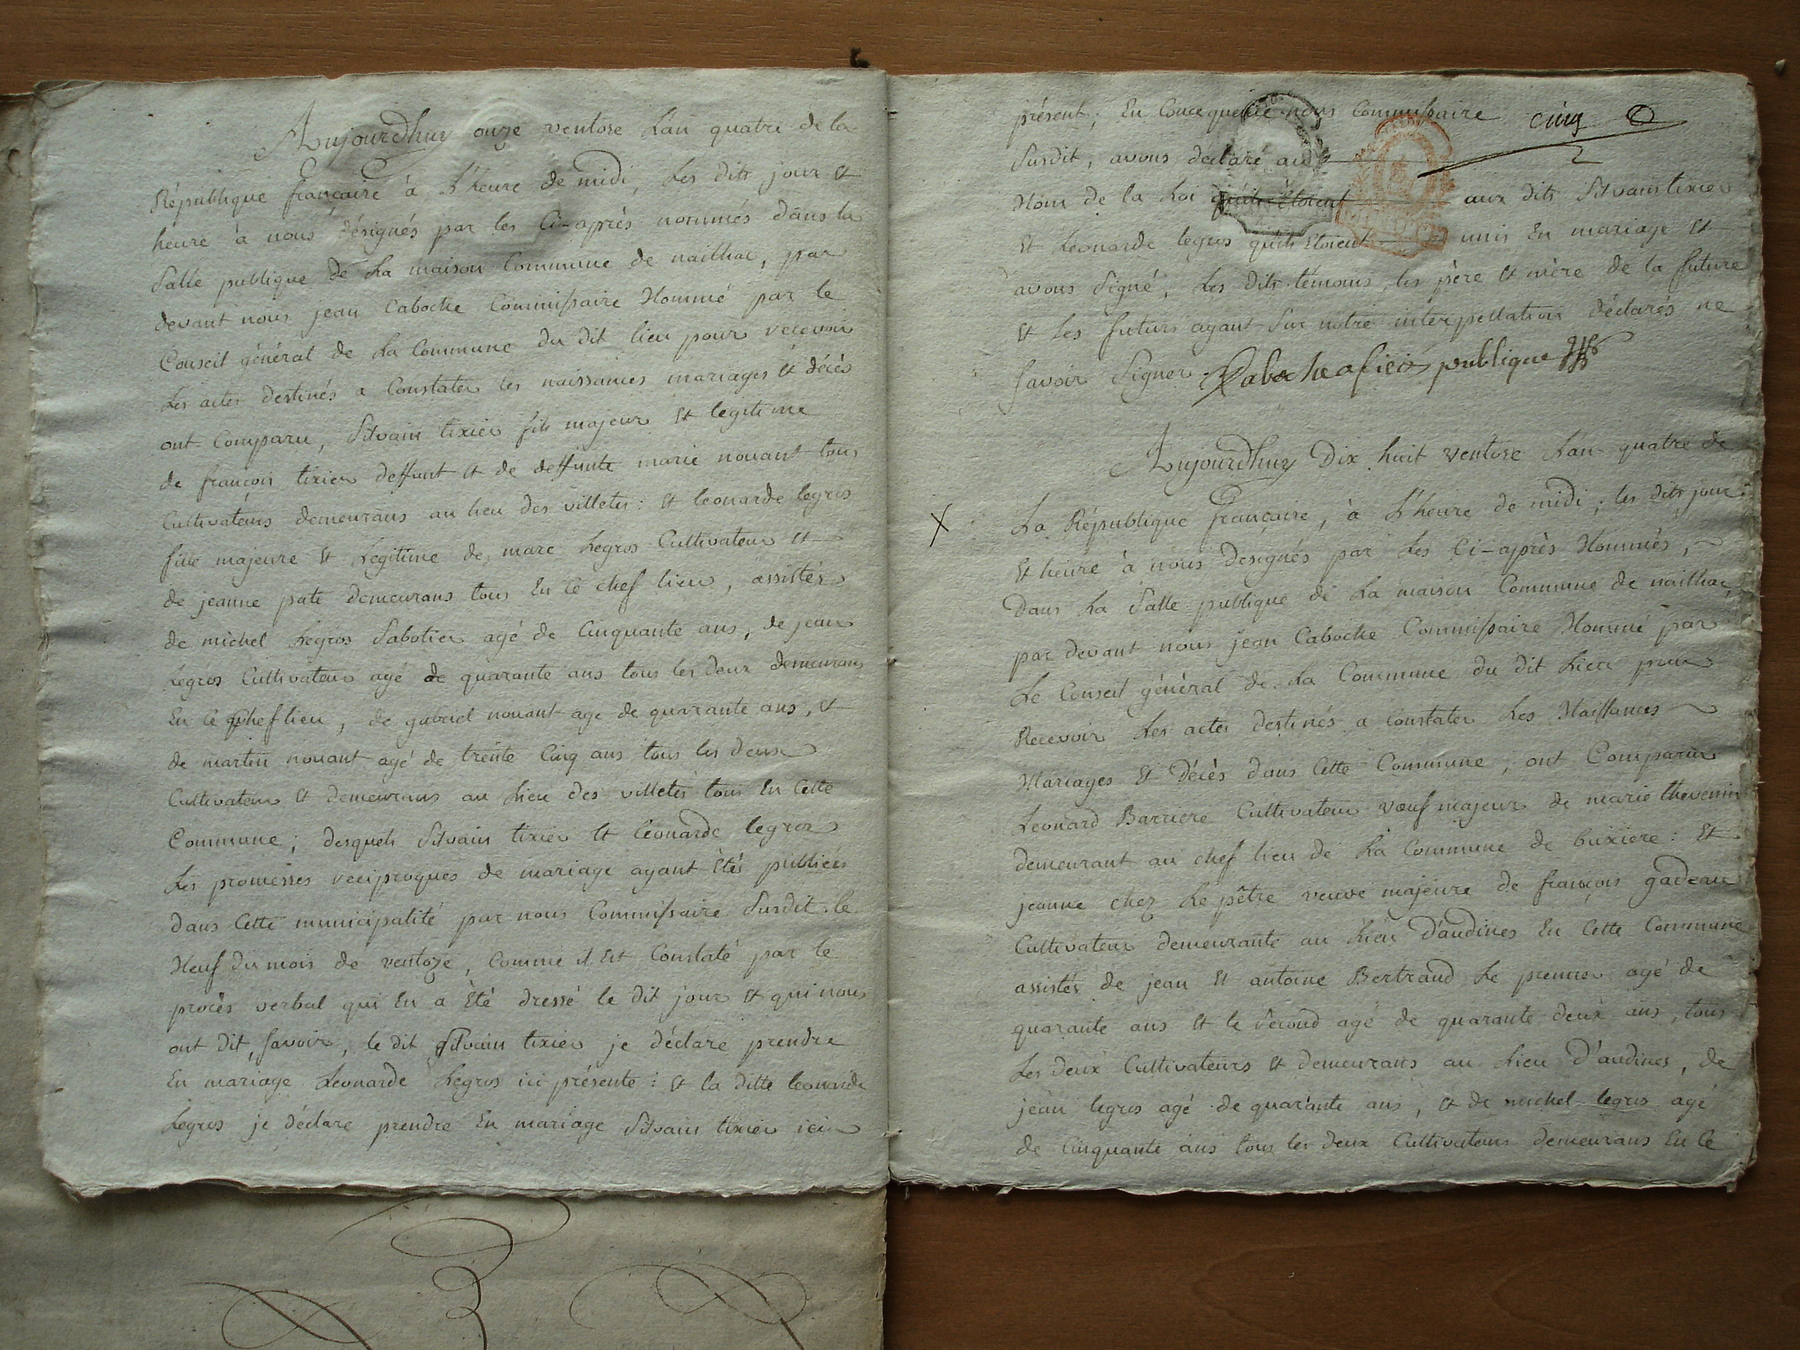 Aujourdhuy onze ventose Lan quatre de la
République françaire à L'heure de midi, Les dits jour Et
heure à nous désignés par les Ci-après nommés dans la
Salle publique de La maison Commune de naillac, par
devant nous jean Caboche Commissaire Nommé par le
Conseil général de La Commune du dit lieu pour recevoir
Les actes destinés a Constater les naissances mariages Et décès
ont Comparu, Silvain tixier fils majeur Et legitime
de françois tixier deffunt et de deffunte marie nouant tous
Cultivateurs demeurans au lieu des villetes : Et leonarde legros
fille majeure Et Légitime de marc Legros Cultivateur Et
de jeanne pate demeurans tous En Ce chef lieu, assistés
de michel Legros Sabotier agé de Cinquante ans, de jean
Legros Cultivateur agé de quarante ans tous les deux demeurans
En Ce Cheflieu, de gabriel nouant age de quarante ans, Et
de martin nouant agé de trente Cinq ans tous les deux
Cultivateurs Et demeurans au Lieu des villetes tous En Cette
Commune ; desquels Silvain tixier Et Leonarde legros
Les promesses reciproques de mariage ayant Etés publiées
dans Cette municipalité par nous Commissaire Susdit le
Neuf du mois de ventoze, Comme il Est Constaté par le
procès verbal qui En a Eté dressé le dit jour Et qui nous
ont dit, Savoir, le dit Silvain tixier je déclare prendre
En mariage Leonarde Legros ici présente : Et la ditte leonarde
Legros je déclare prendre En mariage Silvain tixier ici
présent ; En Concequence nous Commissaire cinq
Susdit, avons déclaré au
Nom de la Loi quils Etoient aux dits Silvain tixier
Et Leonarde legros quils Etoient unis En mariage Et
avons Signé, Les dits témoins, les père Et mère de la future
Et Les futurs ayant Sur notre interpellation déclarés ne
Savoir Signer. Caboche aficier publique
Aujourdhuy Dix huit ventose Lan quatre de
X La République françaire, à L'heure de midi ; les dits jour
Et heure à nous Désignés par Les Ci-après Nommés,
Dans La Salle publique de La maison Commune de naillac,
par devant nous jean Caboche Commissaire Nommé par
Le Conseil général de La Commune du dit Lieu pour
Recevoir Les actes destinés a Constater Les Naissances
Mariages Et Décès dans Cette Commune ; ont Comparu
Leonard Barriere Cultivateur vœuf majeur de marie thevenin
demeurant au chef lieu de La Commune de buxiere : Et
jeanne chez Le pêtre veuve majeure de françois gadeau
Cultivateur demeurante au Lieu D'audines En Cette Commune
assistés de jean Et antoine Bertrand Le premier agé de
quarante ans Et le second agé de quarante deux ans, tous
Les deux Cultivateurs Et demeurans au Lieu D'audines, de
jean legros agé de quarante ans, Et de michel legros agé
de Cinquante ans tous les deux Cultivateurs demeurans En Ce